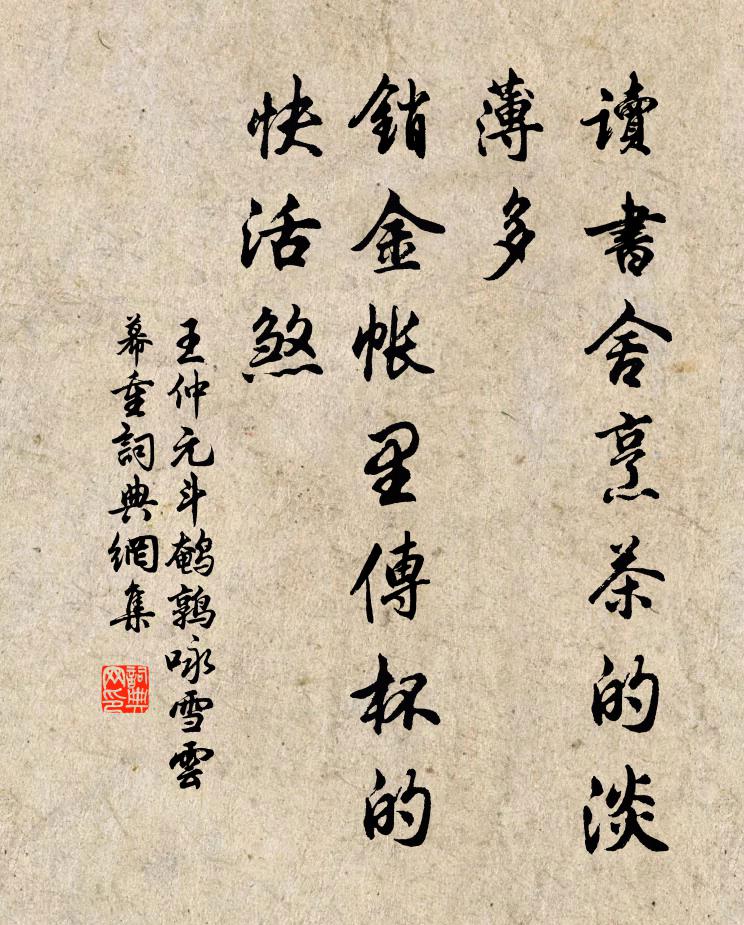 讀書舍烹茶的淡
薄多
銷金帳里傳杯的
快活煞
王仲元斗鵪鶉咏雪雲
幕重詞典網集
詞典
网印